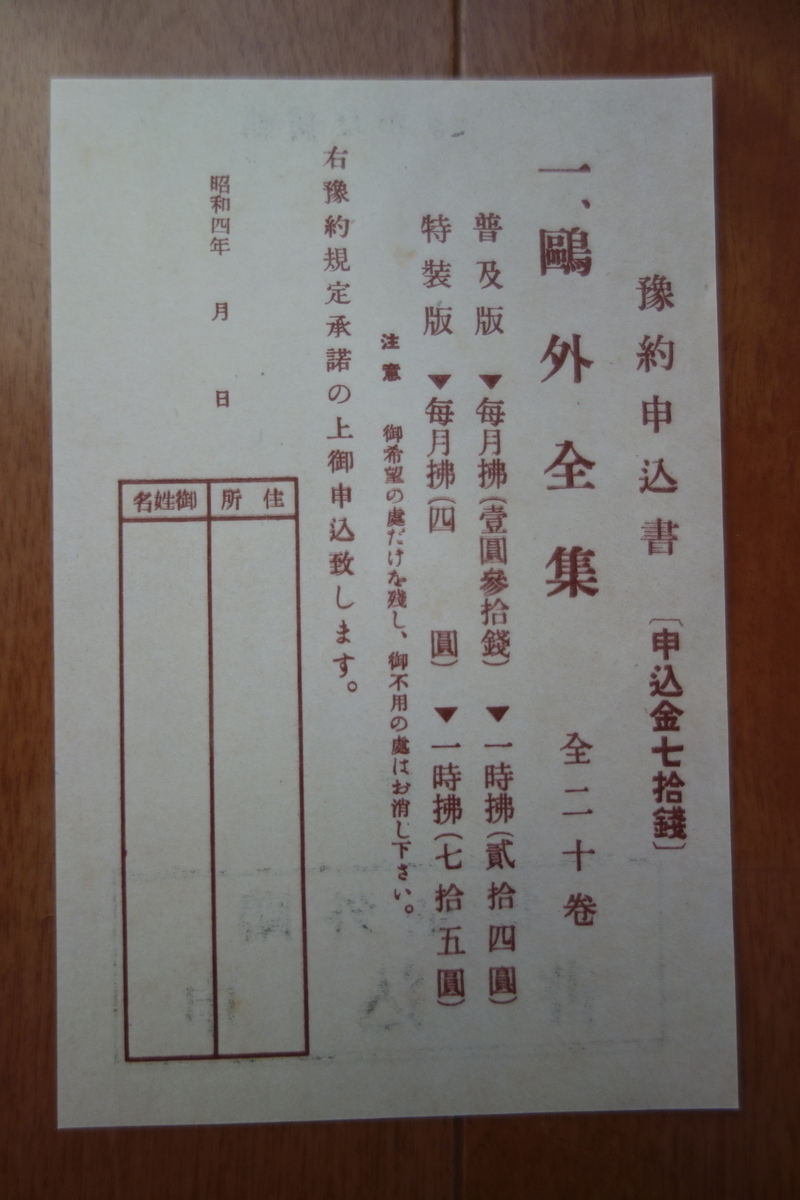 豫約申込書〔申込金七拾錢〕
一、鷗外全集 全二十卷
普及版 ▼每月拂(壹圓參拾錢) ▼一時拂(貳拾四圓)
特裝版 ▼每月拂(四圓) ▼一時拂(七拾五圓)
注意 御希望の處だけを殘し、御不用の處はお消し下さい。
右豫約規定承諾の上御申込致します。
昭和四年 月 日
住所
御姓名